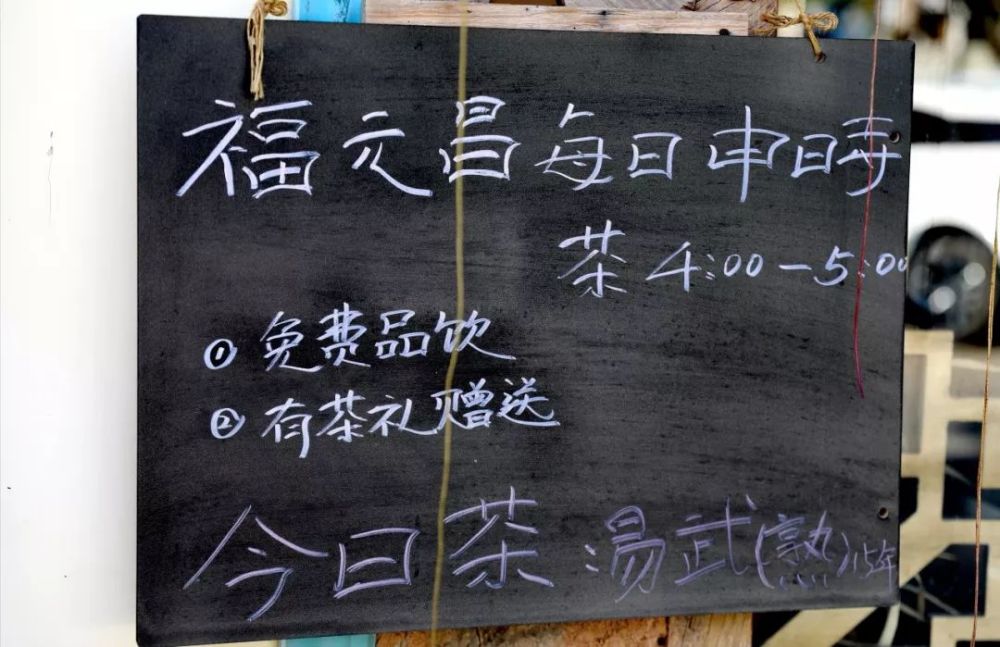 福元昌每日申时
茶 4:00-5:00
① 免费品饮
② 有茶礼赠送
今日茶 汤武(熟)15年